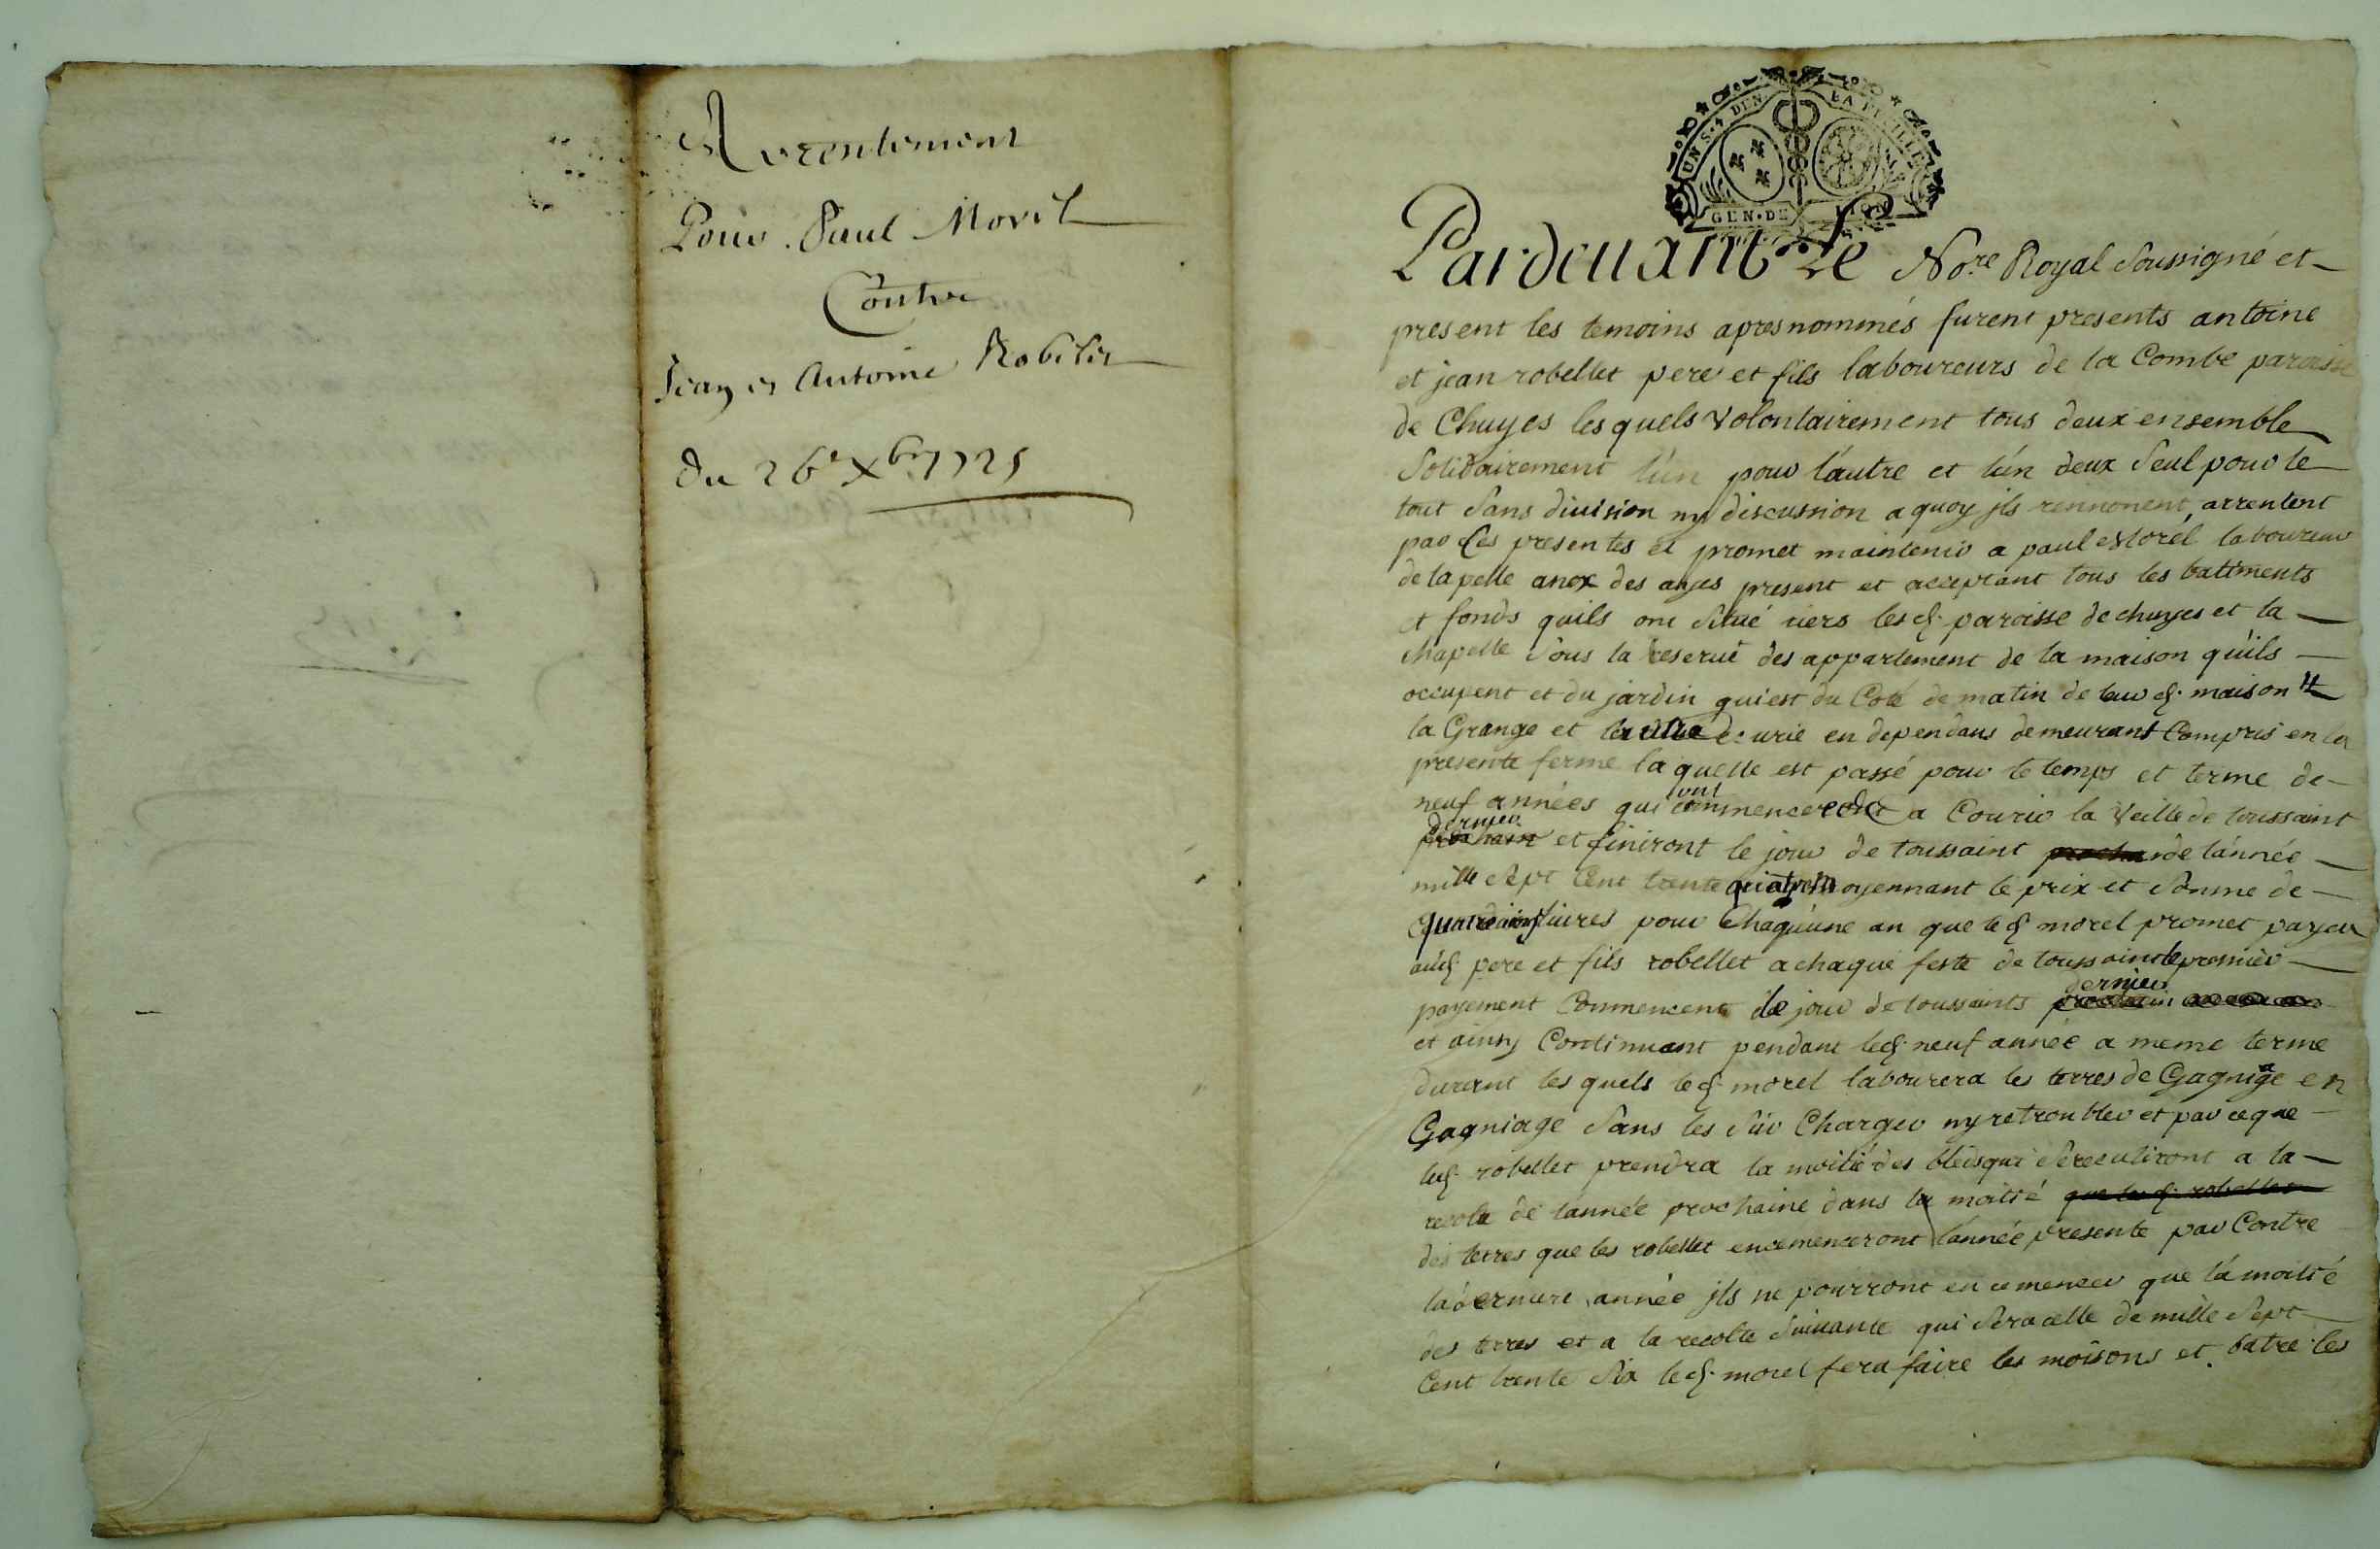 Arrentement
Pour Paul Morel
Contre
Jean et Antoine Robelet
Du 26e Xbre 1725
UN S. 4 DEN. LA FEUILLE
GEN. DE LION
Pardeuant Le Nore. Royal Soussigné et
present les temoins apresnommés furent presents antoine
et jean robellet pere et fils laboureurs de la Combe paroisse
de Chuyes lesquels volontairement tous deux ensemble
Solidairement l'un pour lautre et lun deux Seul pour le
tout Sans diuision ny discussion a quoy jls rennonent, arrentent
par Ces presentes et promet maintenir a paul morel laboureur
de lapelle anex des ayes present et acceptant tous les batiments
et fonds quils ont Situé uiers lesd. paroisse de chuyes et la
chapelle Sous la reserue des appartement de la maison quils
occupent et du jardin qui est du Coté de matin de leur d. maison
la Grange et ecurie en dependans demeurant Compris en la
presente ferme laquelle est passé pour le temps et terme de
neuf années qui ont commencer a Courir la Veille de toussaint
dernier et finiront le jour de toussaint de lannée
mille Sept Cent trente quatre moyennant le prix et Somme de
liures pour Chaquune an que led. morel promet payer
aud. pere et fils robellet a chaque feste de toussaint le premier
payement Commencent le jour de toussaints dernier
et ainsy Continuant pendant led. neuf année a meme terme
durant lesquels led. morel labourera les terres de Gagniage en
Gagniage Sans les Sur Charger ny retroubler et par ce que
led. robellet prendra la moitié des bleds qui Sereculiront a la
recolte de lannée prochaine dans la moitié que led. robellet
des terres que les robellet encemenceront lannée presente par Contre
la derniere année jls ne pourront encemencer que la moitié
des terres et a la recolte Suiuante qui Sera celle de mille Sept
Cent trente Six led. morel fera faire les moisons et batre les